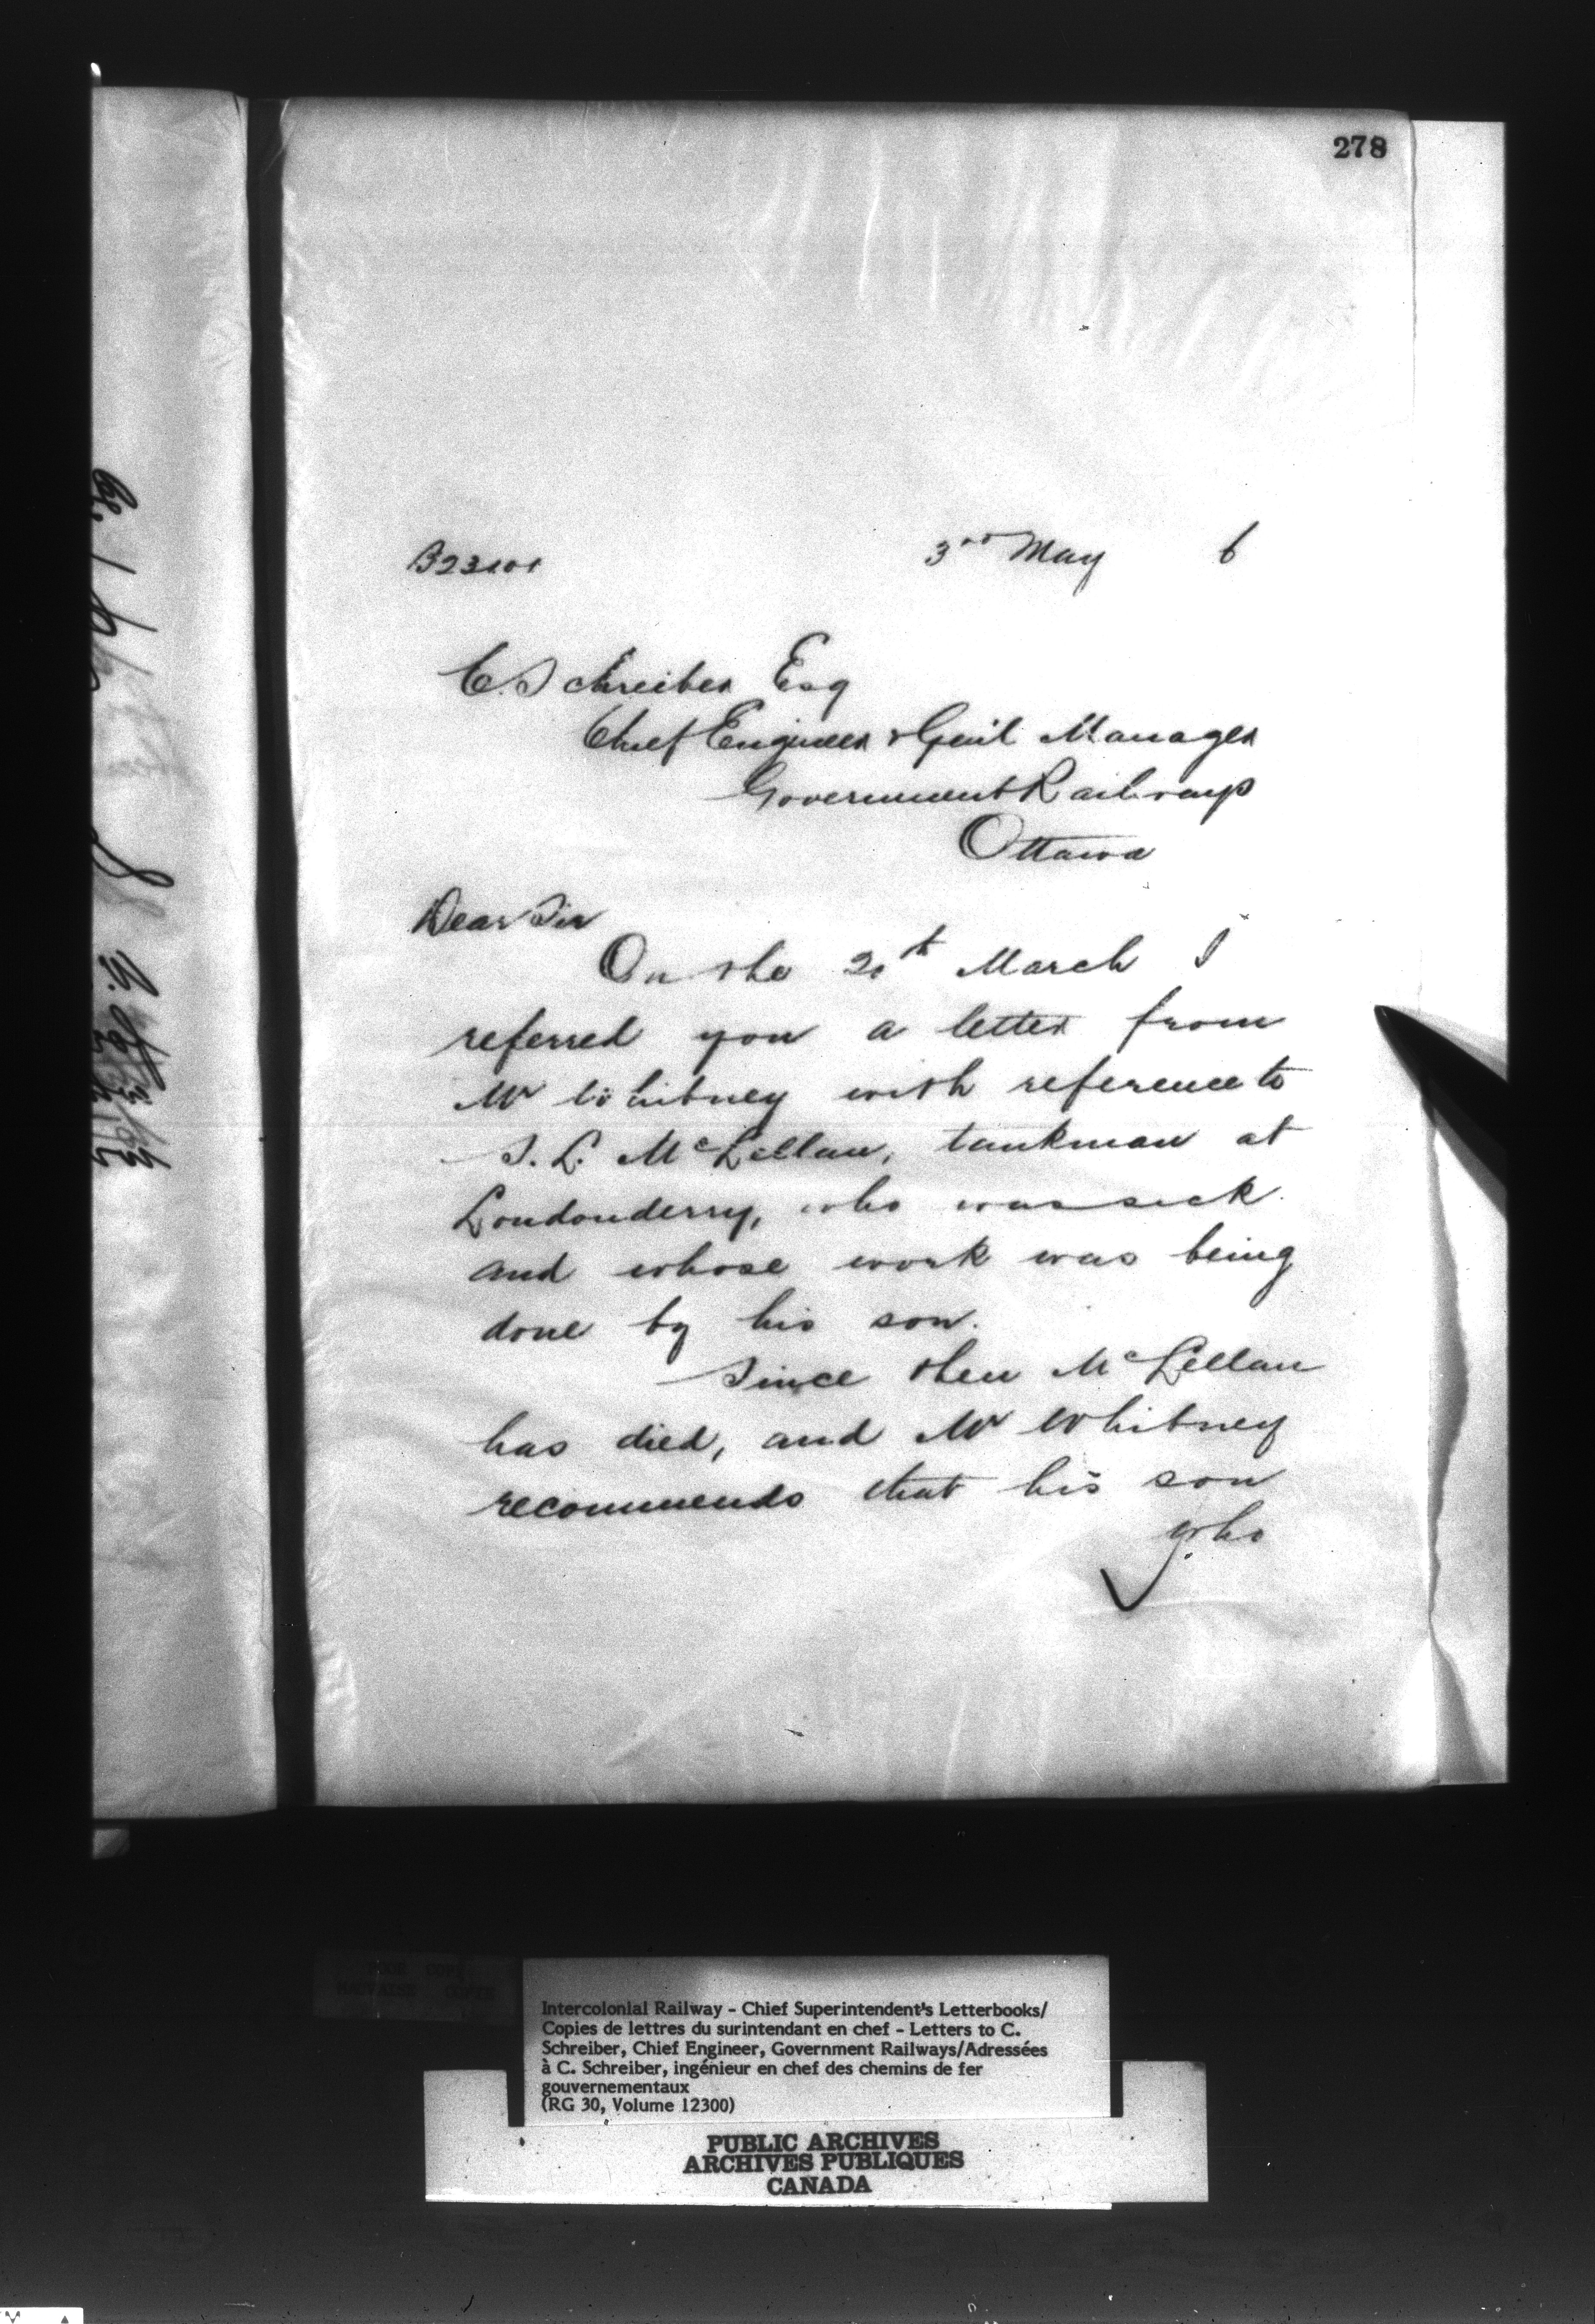 278
B23101
3rd May 6
C. Schreiber Esq
Chief Engineer & Genl Manager
Government Railways
Ottawa
Dear Sir
On the 20th March I
referred you a letter from
Mr Whitney with reference to
J. L. McLellan, tankman at
Londonderry, who was sick
and whose work was being
done by his son.
Since then McLellan
has died, and Mr Whitney
recommends that his son
who
Intercolonial Railway - Chief Superintendent's Letterbooks/
Copies de lettres du surintendant en chef - Letters to C.
Schreiber, Chief Engineer, Government Railways/Adressées
à C. Schreiber, ingénieur en chef des chemins de fer
gouvernementaux
(RG 30, Volume 12300)
PUBLIC ARCHIVES
ARCHIVES PUBLIQUES
CANADA